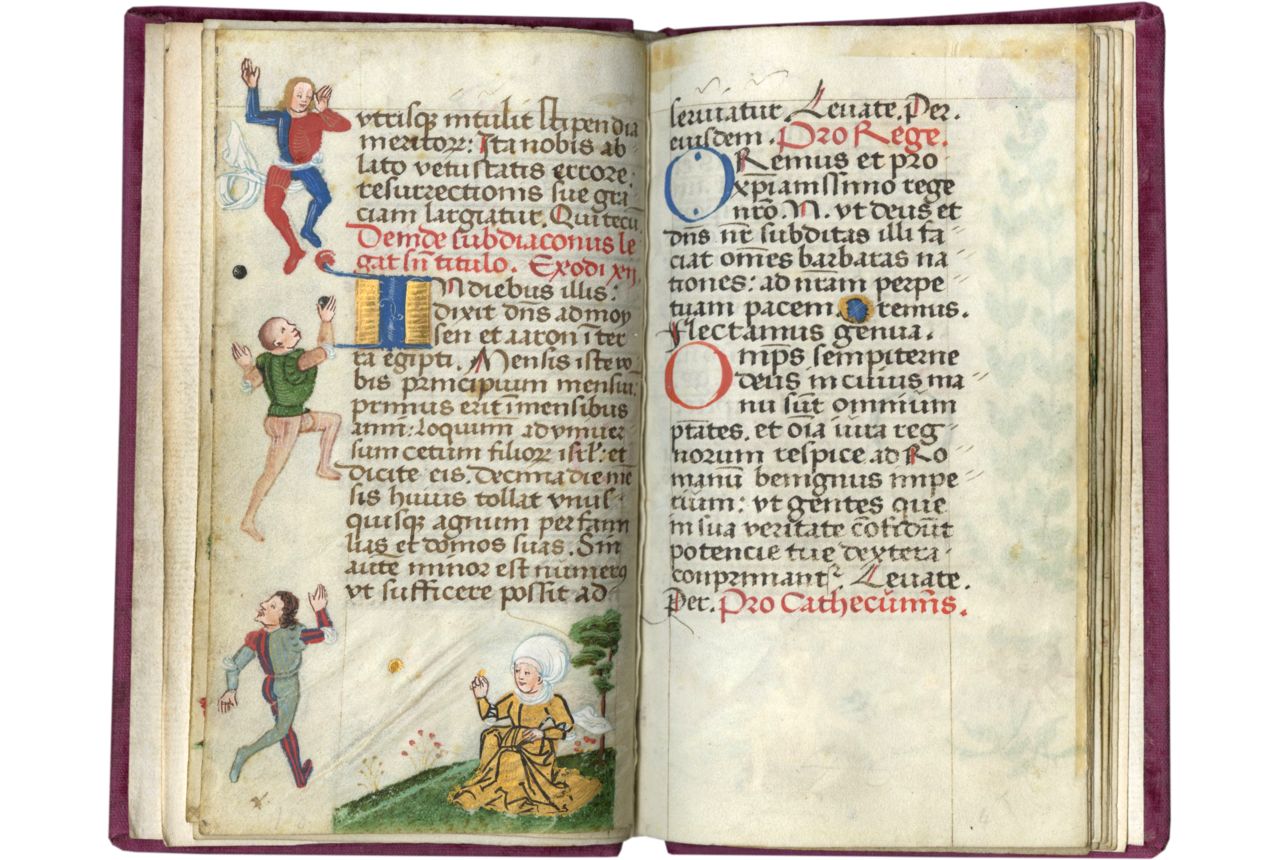 vtrisq; intulit stipendia
meritoꝝ: Ita nobis ab
lato vetustatis errore.
resurrectionis sue gra
ciam largiatur. Qui tecū
Deinde subdiaconus le
gat sn̄ titulo. Exodi xij
In diebus illis:
dixit dn̄s ad moy
sen et aaron i ter
ra egipti. Mensis iste vo
bis principium mensiū:
primus erit ī mensibus
anni: loquim ad vniuer
sum cetum filioꝝ isrl': et
dicite eis. Decima die mē
sis huius tollat vnus
quisq; agnum per fam
lias et domos suas. Sin
aūte minor est numerꝰ
vt sufficere possit ad
seruiatur. Leuate. Per.
eiusdem. Pro Rege.
ORemus et pro
xp̄ianissimo rege
nr̄o. N. vt deus et
dn̄s nr̄ subditas illi fa
ciat om̄es barbaras na
tiones: ad nr̄am perpe
tuam pacem. Oremus.
Flectamus genua.
Omps sempiterne
deus in cuius ma
nu sūt omnium
ptātes. et oīa iura reg
norum respice ad Ro
manū benignus impe
rium: vt gentes que
in sua veritate cōfidūt
potencie tue dextera
conprimantᷣ. Leuate.
Per. Pro Cathecūm̄is.